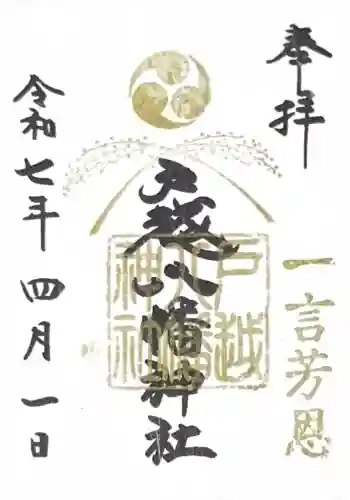 奉拝
一言芳恩
戸越八幡神社
戸越八幡神社
令和七年四月一日